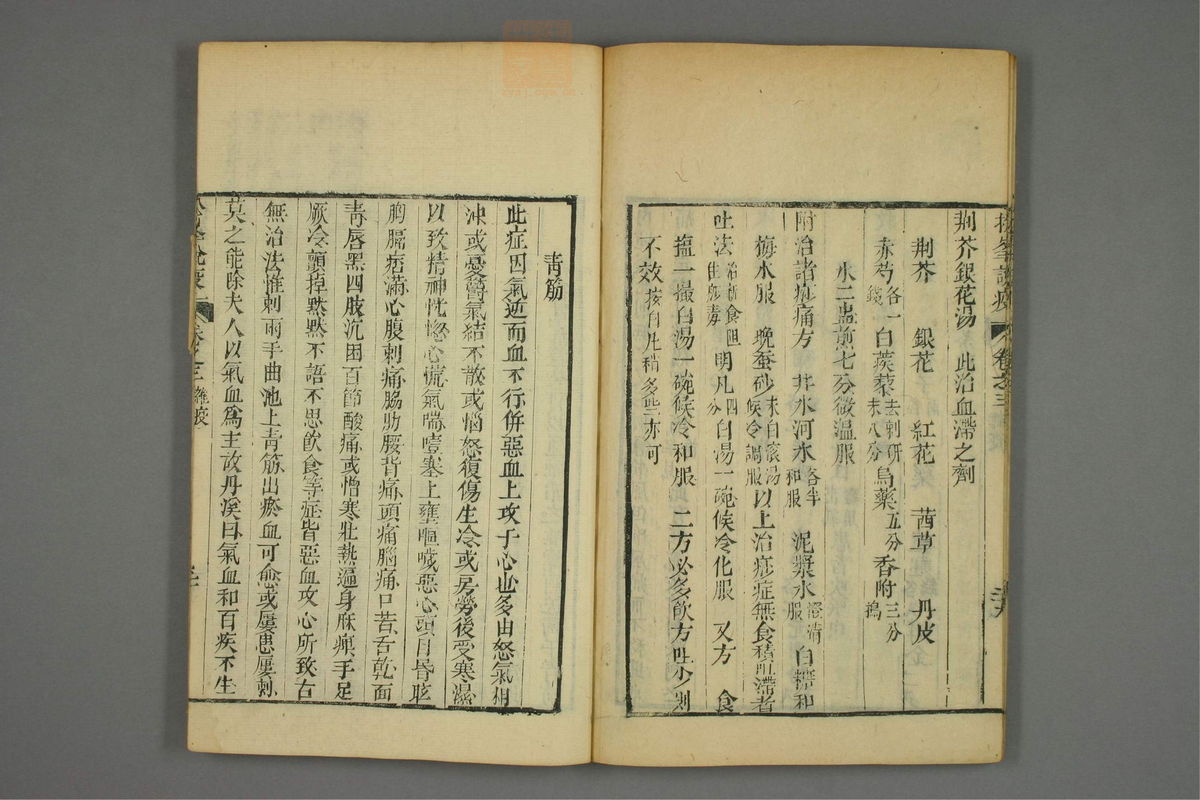 松峯說疫 卷之三
荆芥銀花湯 此治血滯之劑
荆芥 銀花 紅花 茜草 丹皮
赤芍各一錢 白蒺藜去刺研末八分 烏藥五分 香附三分
水二盅煎七分微溫服
附治諸痧痛方 井水河水各半和服 泥漿水澄清服 白糖和
梅水服 晚蚕砂末白滾湯候冷調服 以上治痧症無食積血滯者
吐法 明凡四分白湯一碗候冷化服 又方 食
塩一撮白湯一碗候冷和服 二方必多飲方吐少則
不效按白凡稍多些亦可
青筋
此症因氣逆而血不行併惡血上攻于心也多由怒氣相
沖或憂鬱氣結不散或惱怒復傷生冷或房勞後受寒濕
以致精神恍惚心慌氣喘噎塞上壅嘔噦惡心頭目昏眩
胸膈痞滿心腹刺痛脇肋腰背痛頭痛腦痛口苦舌乾面
青唇黑四肢沉困百節酸痛或憎寒壯熱遍身麻痺手足
厥冷顫掉默默不語不思飲食等症皆惡血攻心所致古
無治法惟刺兩手曲池上青筋出瘀血可愈或屢患屢刺
莫之能除夫人以氣血為主故丹溪曰氣血和百疾不生
卷之三雜疫